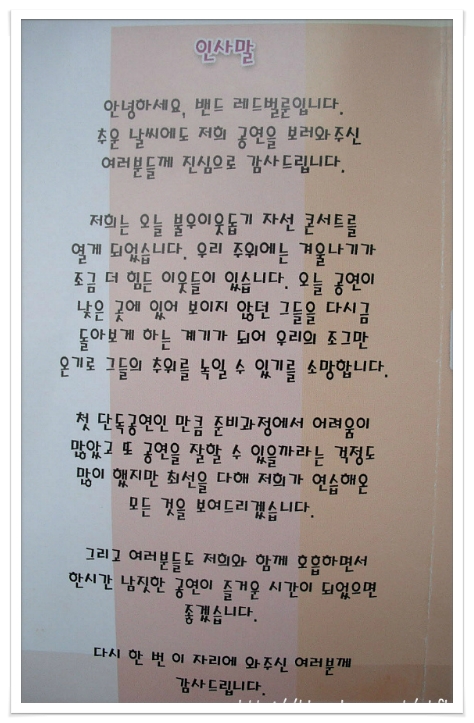 인사말
안녕하세요, 밴드 레드벌룬입니다.
추운 날씨에도 저희 공연을 보러와주신
여러분들께 진심으로 감사드립니다.
저희는 오늘 불우이웃돕기 자선 콘서트를
열게 되었습니다. 우리 주위에는 겨울나기가
조금 더 힘든 이웃들이 있습니다. 오늘 공연이
낮은 곳에 있어 보이지 않던 그들을 다시금
돌아보게 하는 계기가 되어 우리의 조그만
온기로 그들의 추위를 녹일 수 있기를 소망합니다.
첫 단독공연인 만큼 준비과정에서 어려움이
많았고 또 공연을 잘할 수 있을까라는 걱정도
많이 했지만 최선을 다해 저희가 연습해온
모든 것을 보여드리겠습니다.
그리고 여러분들도 저희와 함께 호흡하면서
한시간 남짓한 공연이 즐거운 시간이 되었으면
좋겠습니다.
다시 한 번 이 자리에 와주신 여러분께
감사드립니다.